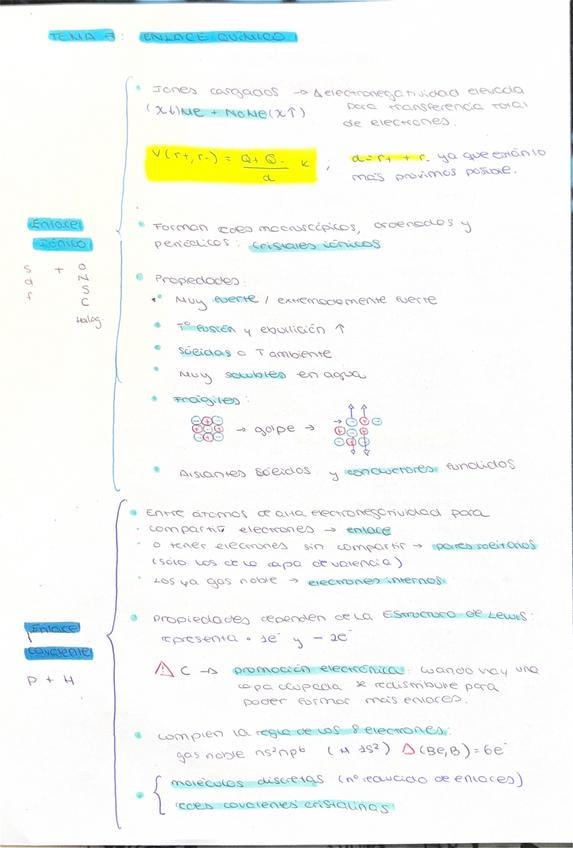 TEMA 3: ENLACE QUÍMICO
Iones cargados → Δ electronegatividad elevada
(x↓) Me + NoMe (x↑) para transferencia total
de electrones.
V(r+, r-) = Q+ Q- / d K , d = r+ + r- ya que están lo
más próximos posible.
Enlace
Iónico
s + O
d N
f S
C
Halóg.
Forman redes macroscópicas, ordenados y
periódicos: cristales iónicos
Propiedades:
Muy fuerte / extremadamente fuerte
Tº fusión y ebullición ↑
Sólidos a T ambiente
Muy solubles en agua
Frágiles:
→ golpe →
Aislantes sólidos y conductores fundidos
Entre átomos de alta electronegatividad para
compartir electrones → enlace
o tener electrones sin compartir → pares solitarios
(sólo los de la capa de valencia)
Los ya gas noble → electrones internos
Enlace
covalente
p + H
Propiedades dependen de la Estructura de Lewis:
representa • 1e⁻ y – 2e⁻
⚠ C → promoción electrónica: cuando hay una
capa ocupada se redistribuye para
poder formar más enlaces.
Cumplen la regla de los 8 electrones:
gas noble ns²np⁶ (H 1s²) ⚠ (Be, B) = 6e⁻
moléculas discretas (nº reducido de enlaces)
redes covalentes cristalinas